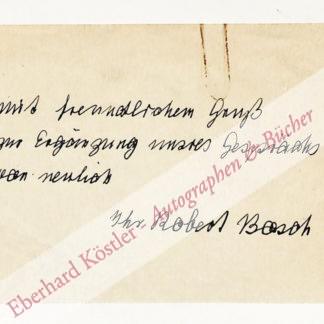 mit freundlichem Gruß
zur Ergänzung unsres Gesprächs
von neulich
Ihr Robert Bosch
Eberhard Köstler Autographen & Bücher